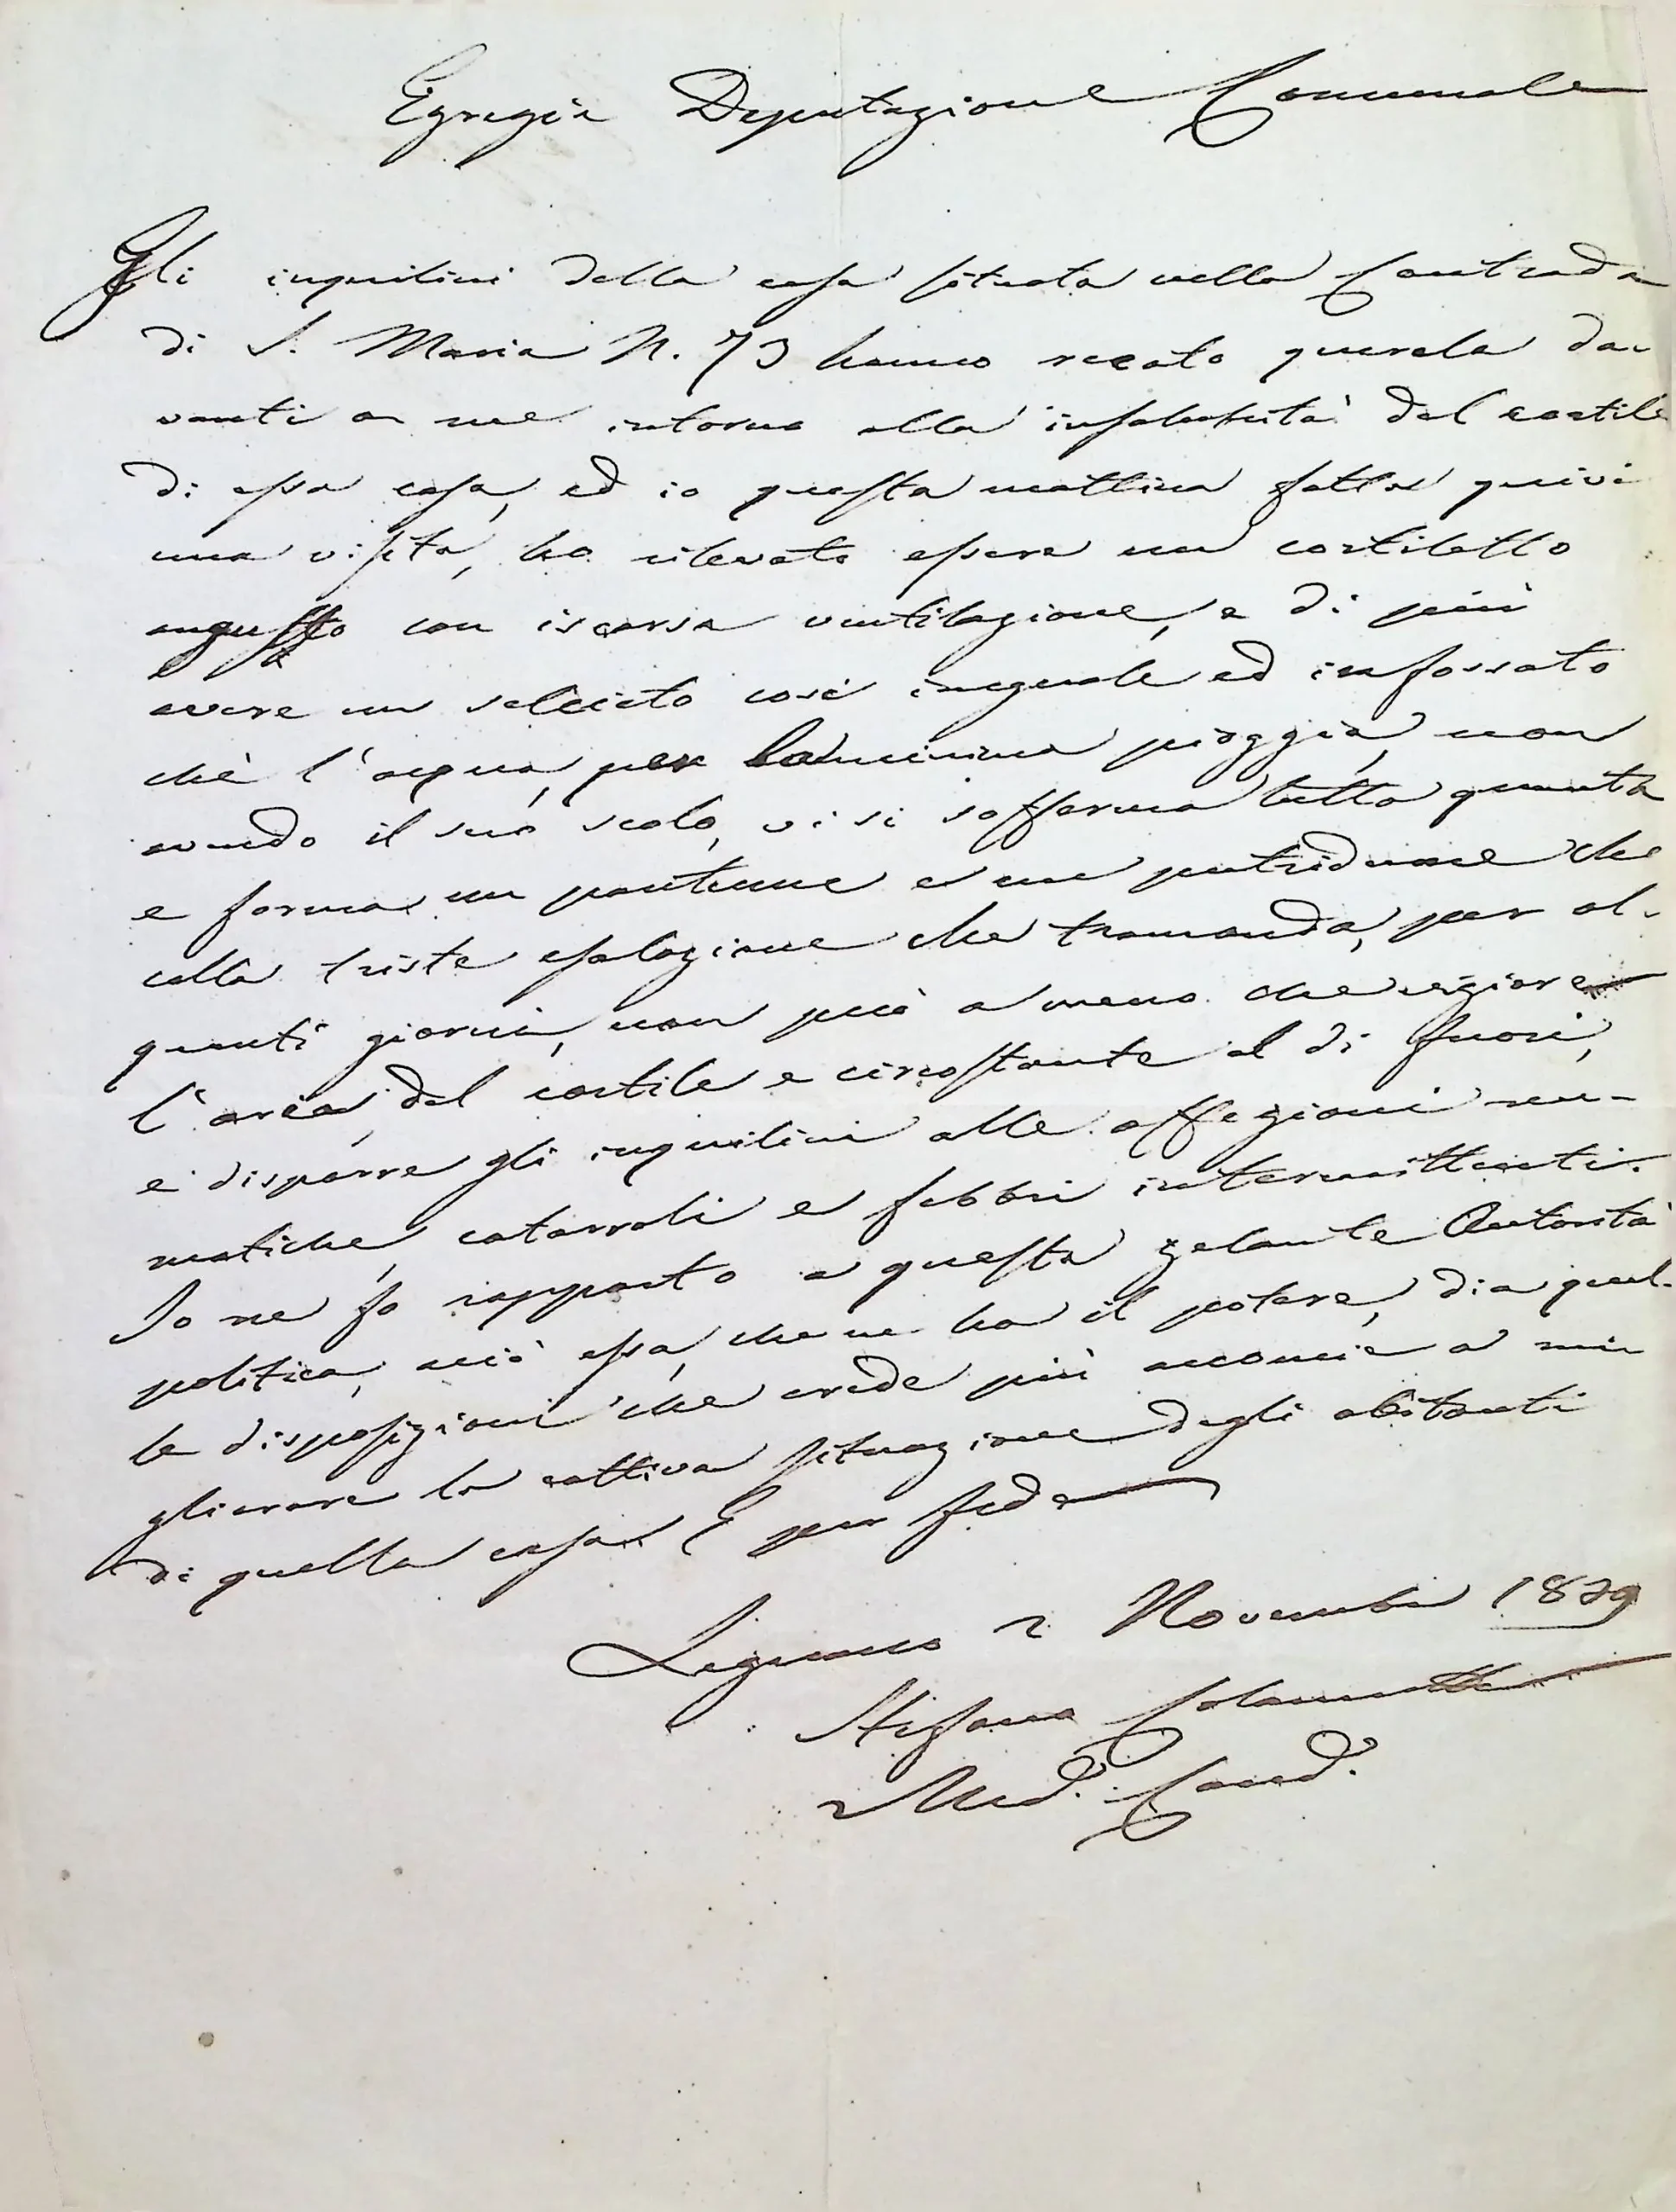 Egregia Deputazione Comunale
Gli inquilini della casa situata nella Contrada
di S. Maria N. 73 hanno recato querela da-
vanti a me intorno alla insalubrità del cortile
di essa casa, ed io questa mattina fatta quivi
una visita, ho rilevato essere un cortiletto
angusto con iscarsa ventilazione, e di più
avere un selciato così ineguale ed infossato
chè l'acqua, per la minima pioggia, non
avendo il suo scolo, vi si sofferma tutta quanta
e forma un pantano e un putridume che
colla triste esalazione che tramanda, per al-
quanti giorni, non può a meno che
l'area del cortile e circostante al di fuori,
e disporre gli inquilini alle affezioni reu-
matiche, catarrali e febbri intermittenti.
Io ne fo rapporto a questa zelante Autorità
politica, acciò essa, che ne ha il potere, dia quel-
le disposizioni che crede più acconcie a mi-
gliorare la cattiva situazione degli abitanti
di quella casa. E per fede
Legnano 2 Novembre 1829
Stefano
Med. Cond.